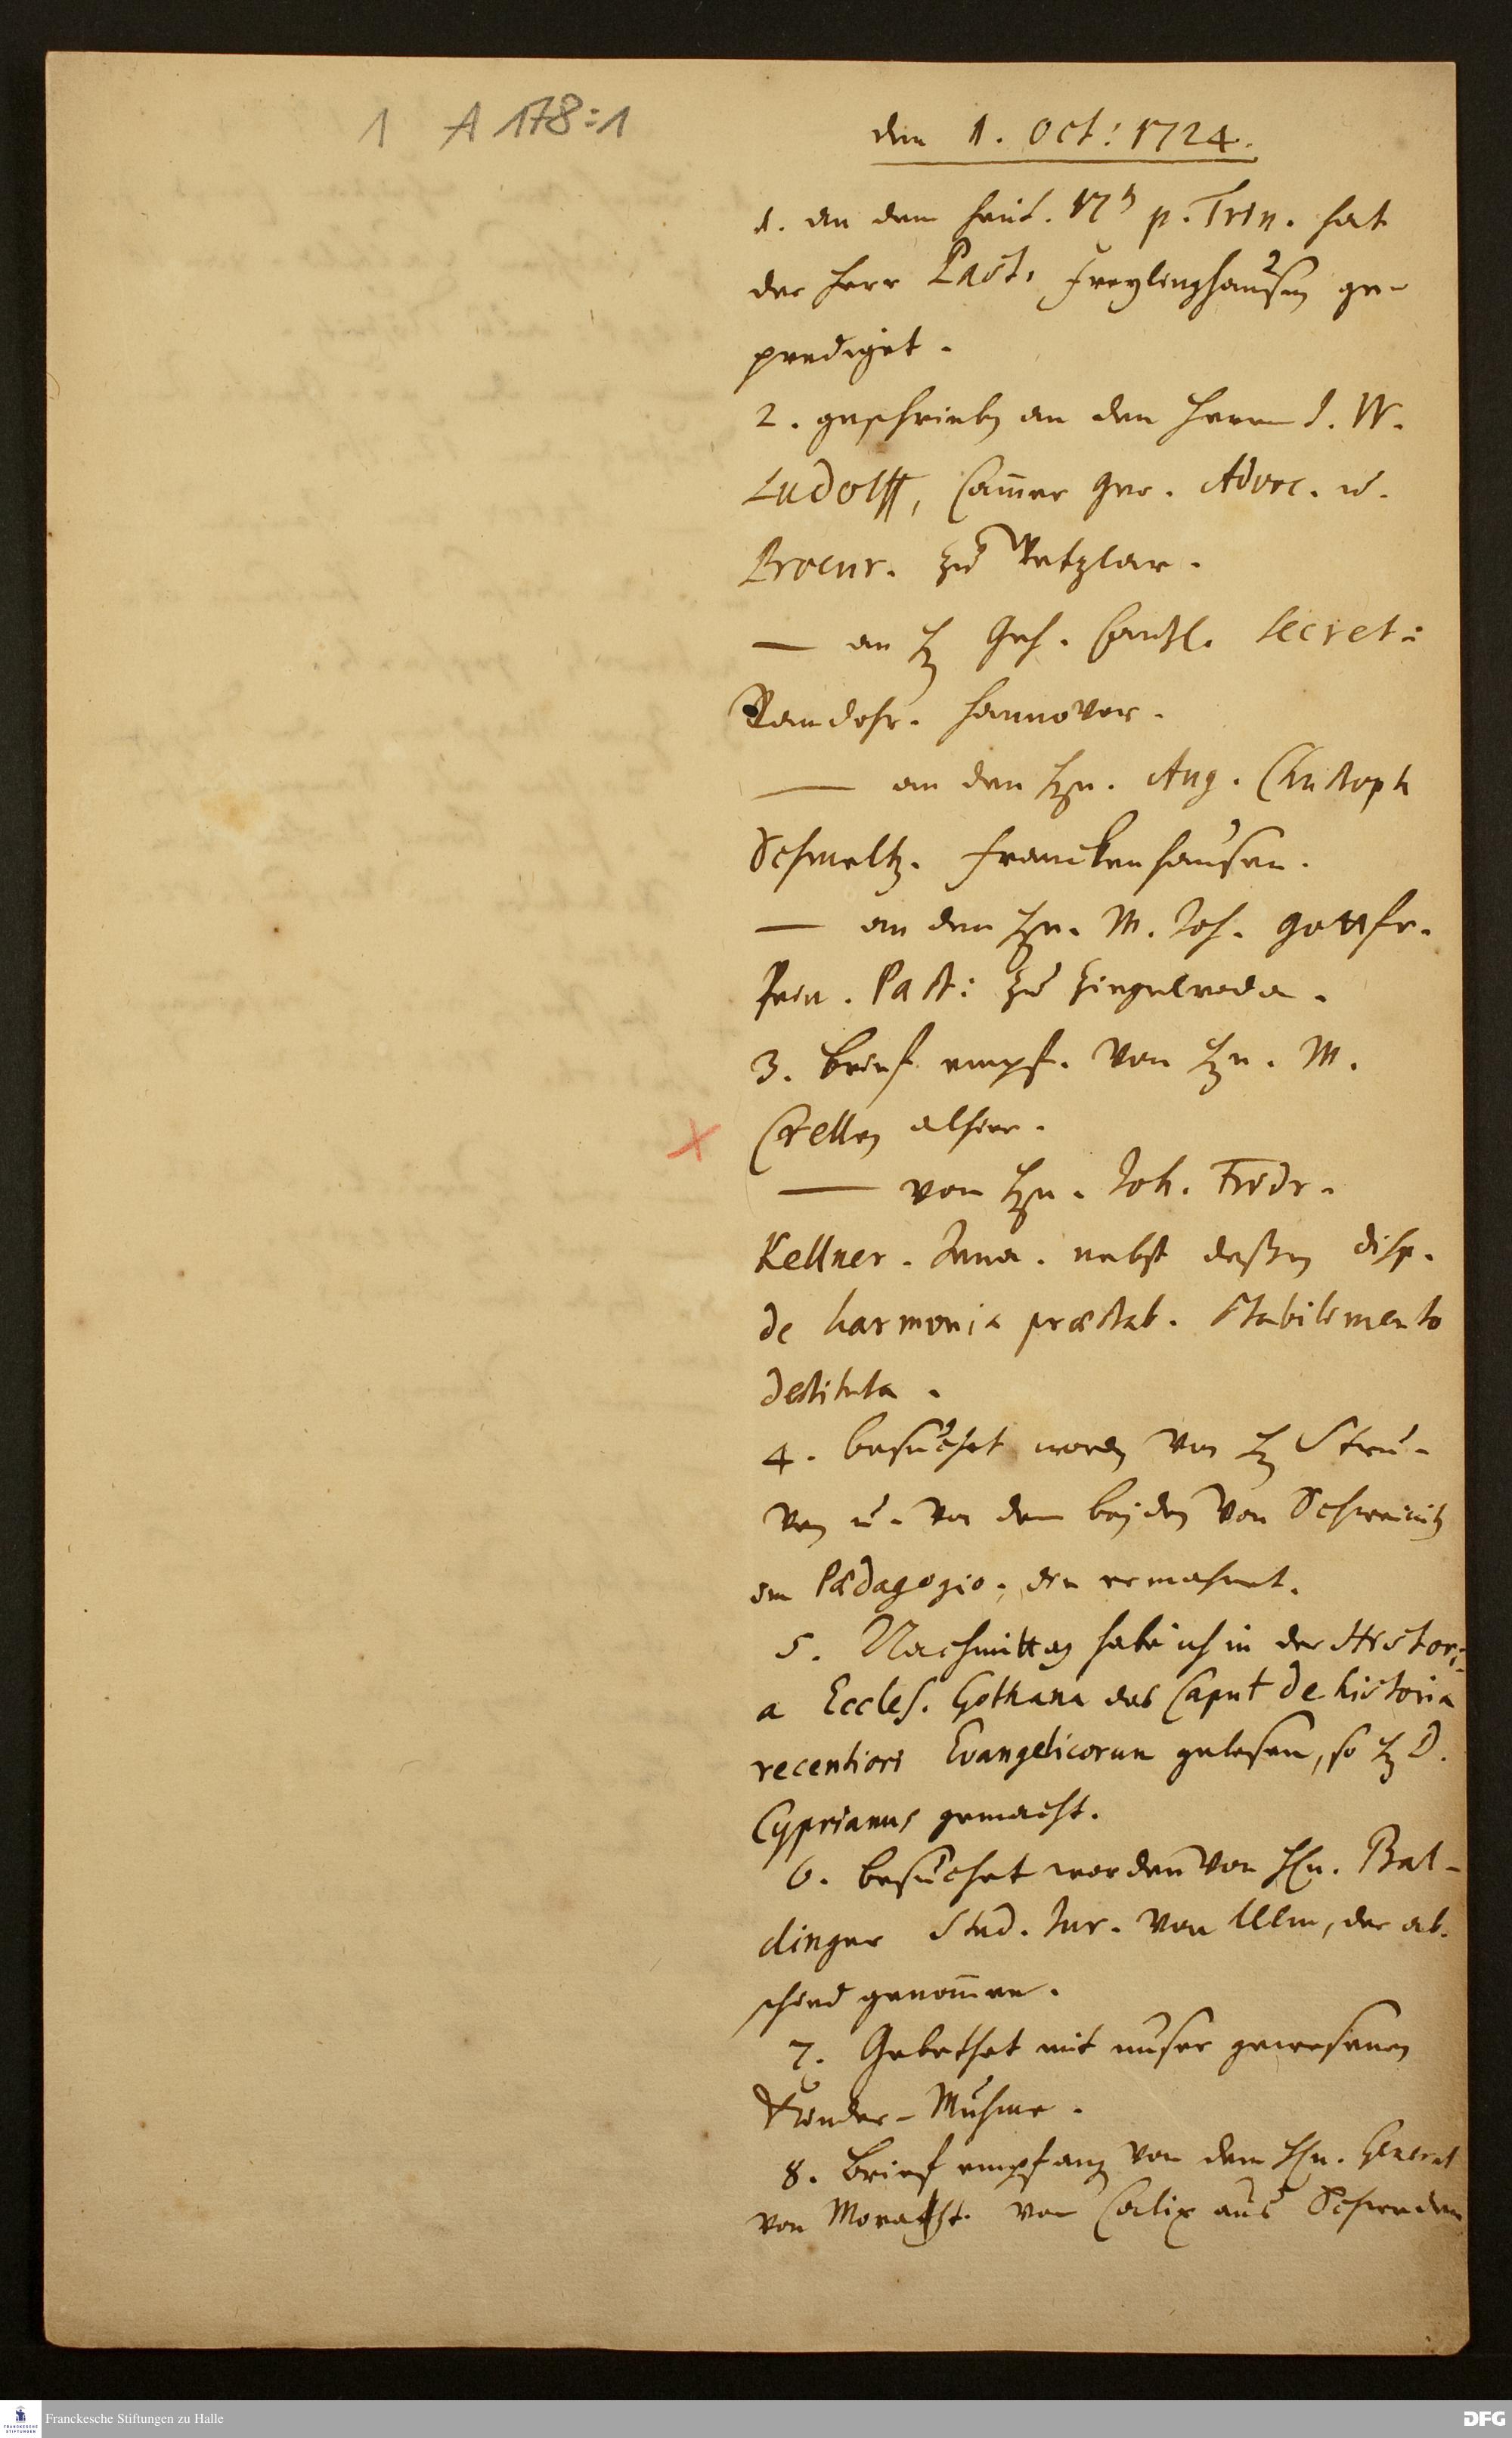 1 A 178:1
den 1. Oct: 1724.
1. an dem heut. 17 p. Trin. hat
der Herr Past. Freylinghausen ge-
prediget.
2. geschrieben an den Herrn J. W.
Ludolff, Cam̅er Ger. Advoc. u.
Procur. zu Wetzlar.
— an H. Geh. Cantzl. Secret:
Ramdohr. Hannover.
— an den Hrn. Aug. Christoph
Schmeltz. Franckenhausen.
— an den Hrn. M. Joh. Gottfr.
Past: zu Ziegelroda.
3. Brief empf. von Hrn. M.
Crellen alhier.
— von Hrn. Joh. Fridr.
Kellner. Jena. nebst deßen disp.
de harmonia præstab. stabilimento
destituta.
4. besuchet worden von H. Stru-
ven u. von den beyden von Schweinitz
im Pædagogio, die ermahnet.
5. Nachmittag habe ich in der Histori-
a Eccles. Gothana das Caput de historia
recentiori Evangelicorum gelesen, so H. D.
Cyprianus gemacht.
6. besuchet worden von Hn. Bal-
dinger Stud. Jur. von Ulm, der ab-
schied genom̅en.
7. Gebethet mit unser gewesenen
Kinder-Muhme.
8. Brief empfang von dem Hn. General
von von Calix aus Schweden
Franckesche Stiftungen zu Halle
DFG